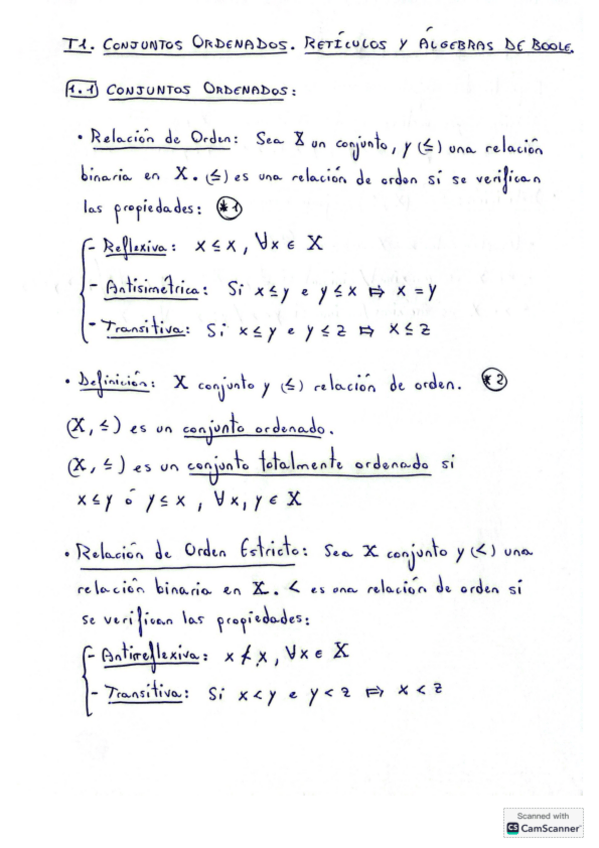 T1. CONJUNTOS ORDENADOS. RETÍCULOS Y ÁLGEBRAS DE BOOLE.
1.1 CONJUNTOS ORDENADOS:
• Relación de Orden: Sea X un conjunto, y (≤) una relación
binaria en X. (≤) es una relación de orden si se verifican
las propiedades: *1
- Reflexiva: x ≤ x, ∀x ∈ X
- Antisimétrica: Si x ≤ y e y ≤ x ⇒ x = y
- Transitiva: Si x ≤ y e y ≤ z ⇒ x ≤ z
• Definición: X conjunto y (≤) relación de orden. *2
(X, ≤) es un conjunto ordenado.
(X, ≤) es un conjunto totalmente ordenado si
x ≤ y ó y ≤ x, ∀x, y ∈ X
• Relación de Orden Estricto: Sea X conjunto y (<) una
relación binaria en X. < es una relación de orden si
se verifican las propiedades:
- Antirreflexiva: x ≮ x, ∀x ∈ X
- Transitiva: Si x < y e y < z ⇒ x < z
Scanned with
CS CamScanner